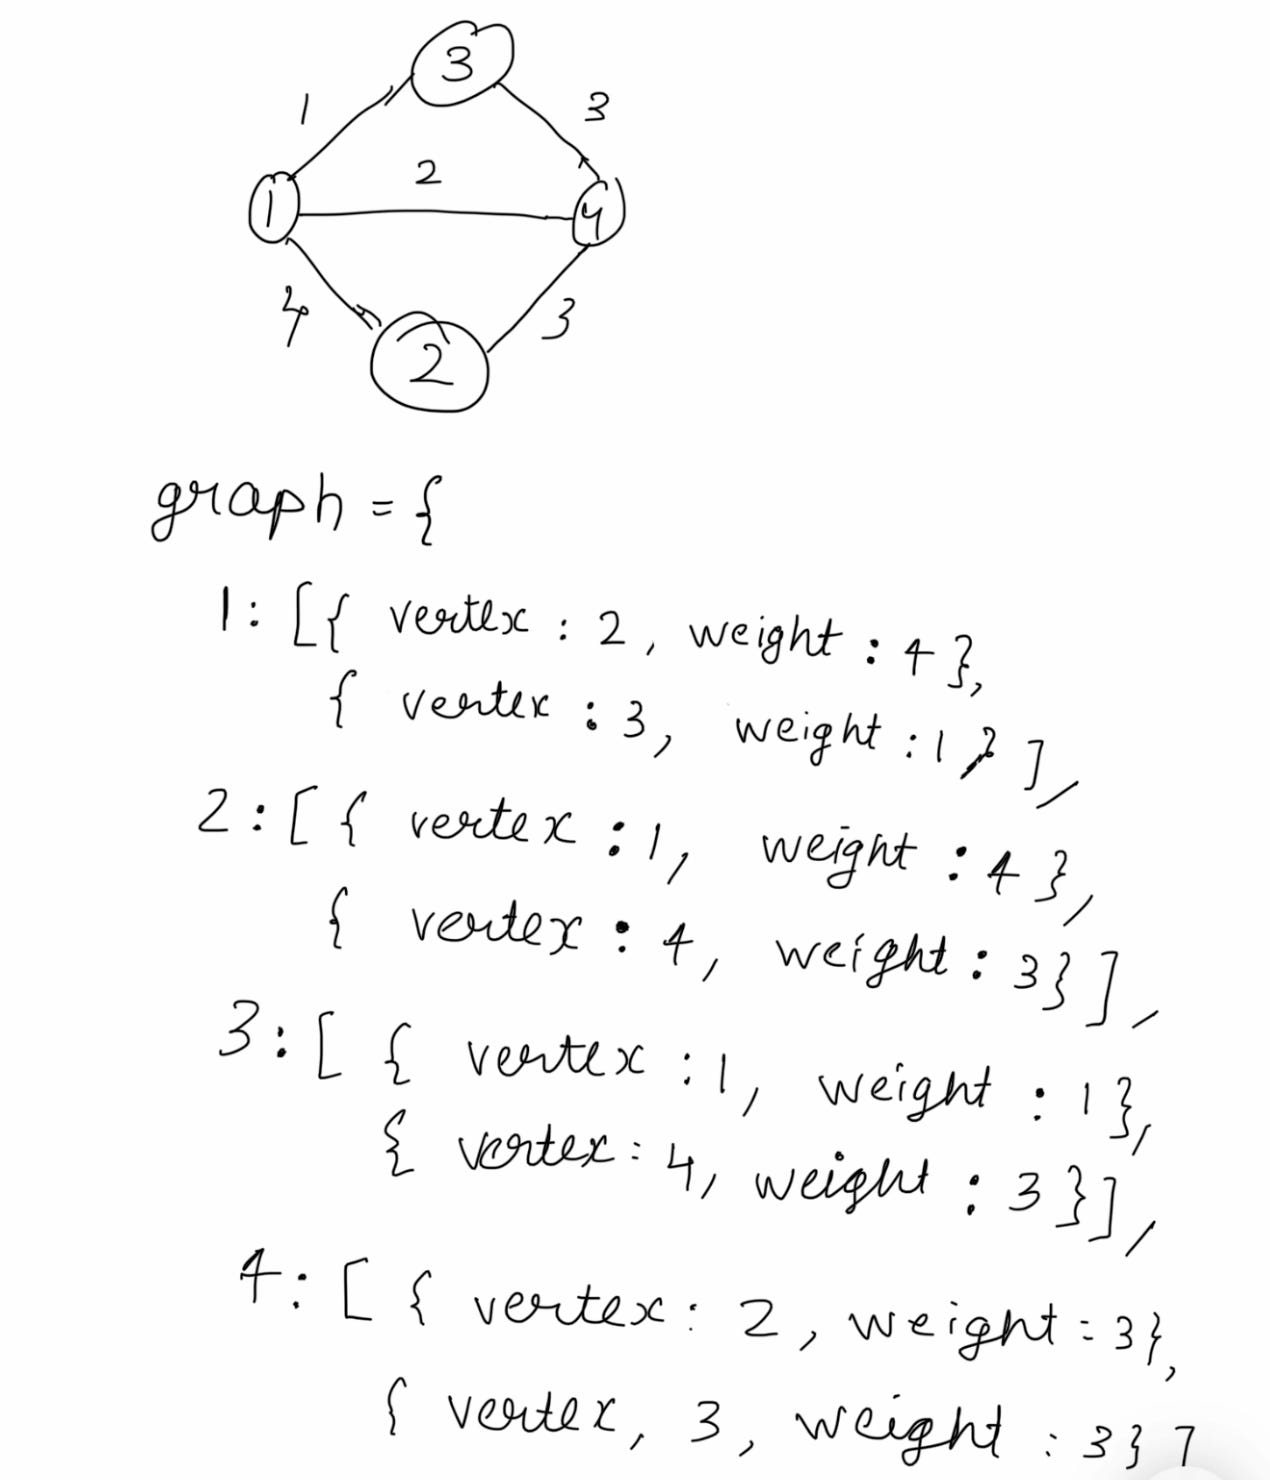 3
1 3
2
1 4
4 3
2
graph = {
1: [{ vertex : 2, weight : 4 },
{ vertex : 3, weight : 1 } ],
2: [ { vertex : 1, weight : 4 },
{ vertex : 4, weight : 3 } ],
3: [ { vertex : 1, weight : 1 },
{ vertex : 4, weight : 3 } ],
4: [ { vertex : 2, weight : 3 },
{ vertex, 3, weight : 3 } ]